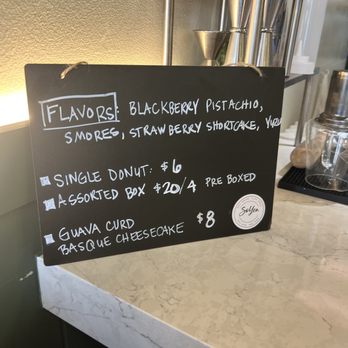 FLAVORS: BLACKBERRY PISTACHIO,
SMORES, STRAWBERRY SHORTCAKE, YUZU
SINGLE DONUT: $6
ASSORTED BOX $20/4 PRE BOXED
GUAVA CURD $8
BASQUE CHEESECAKE